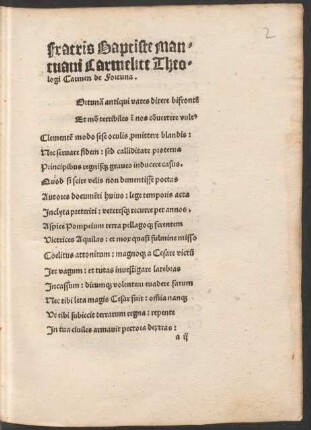 2
Fratris Baptiste Man-
tuani Carmelite Theo-
logi Carmen de Fortuna.
Ortunā antiqui vates dixere bifrontē
Et mō terribiles i nos cōuertere vult⁹
Clementē modo sese oculis ꝓmittere blandis:
Nec seruare fidem: sed calliditate proterua
Principibus regnisq; graues inducere casus.
Quod si scire velis non dementisse poetas
Autores documēti huius: lege temporis acta
Inclyta preteriti: veteresq; recurre per annos.
Aspices Pompeium terra pellagoq; ferentem
Victrices Aquilas: et mox quasi fulmine misso
Coelitus attonitum: magnoq; a Cesare victū
Ire vagum: et tutas inuestigare latebras
Incassum: dirumq; volentem euadere fatum
Nec tibi lita magis Cesar fuit: omnia nanq;
Ut tibi subiecit terrarum regna: repente
In tua ciuiles armauit pectora dextras:
a ij